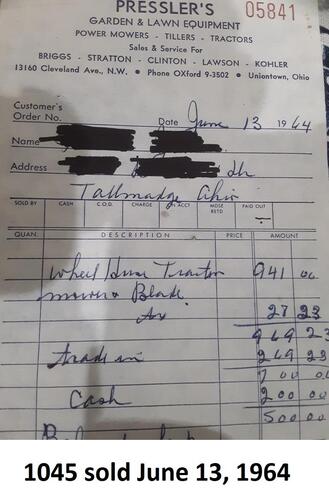 PRESSLER'S 05841
GARDEN & LAWN EQUIPMENT
POWER MOWERS - TILLERS - TRACTORS
Sales & Service For
BRIGGS - STRATTON - CLINTON - LAWSON - KOHLER
13160 Cleveland Ave., N.W. • Phone OXford 9-3502 • Uniontown, Ohio
Customer's
Order No. Date June 13 1964
Name
Address
Tallmadge Ohio
SOLD BY CASH C.O.D. CHARGE ACCT MDSE RETD PAID OUT
QUAN. DESCRIPTION PRICE AMOUNT
Wheel Horse Tractor 941 00
mower & Blade
27 23
969 23
Trade in 269 23
700 00
Cash 200 00
500 00
1045 sold June 13, 1964